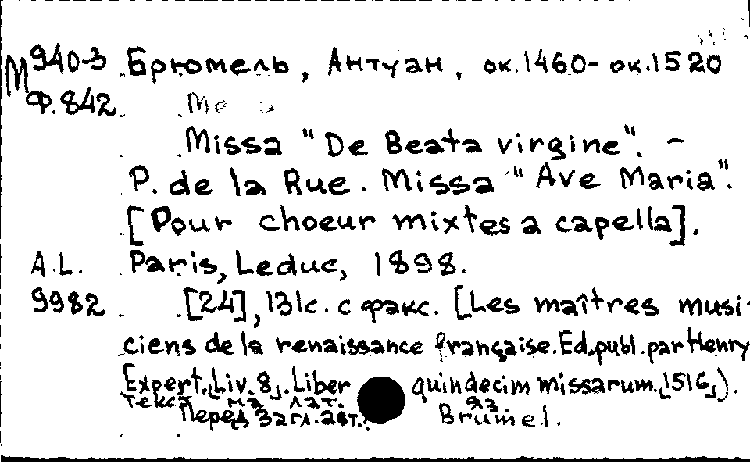 М 940-3 Брюмель, Антуан, ок.1460-ок.1520
Ф.842
Missa "De Beata virgine". –
P. de la Rue. Missa "Ave Maria".
[Pour choeur mixtes a capella].
A.L. Paris, Leduc, 1898.
9982 [24], 131с. с факс. [Les maîtres musi-
ciens de la renaissance française. Ed. publ. par Henry
Expert. Liv. 8. Liber quindecim missarum. 1516).
Текст на лат. яз.
Перед загл. авт.: Brumel.